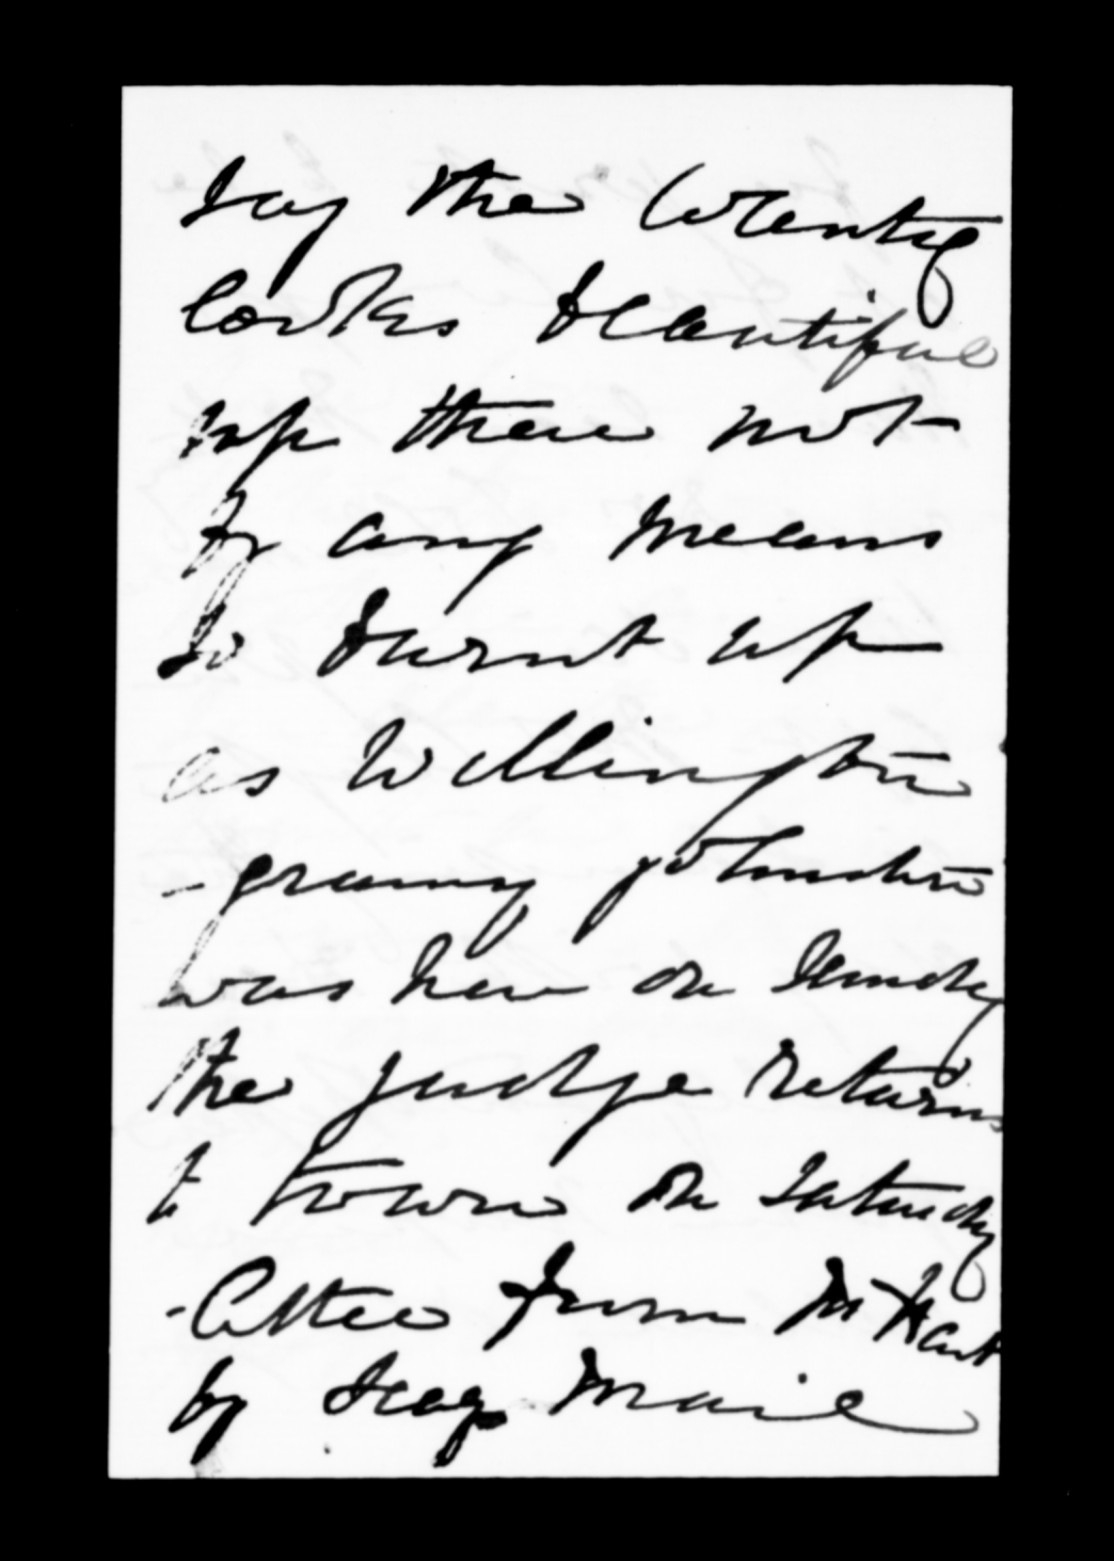 say the Country
looks beautiful
up there not
by any means
so burnt up
as Wellington
- granny Johnston
was here on Sunday
the Judge returns
to town on Saturday
- letter from Mr Hart
by Mail